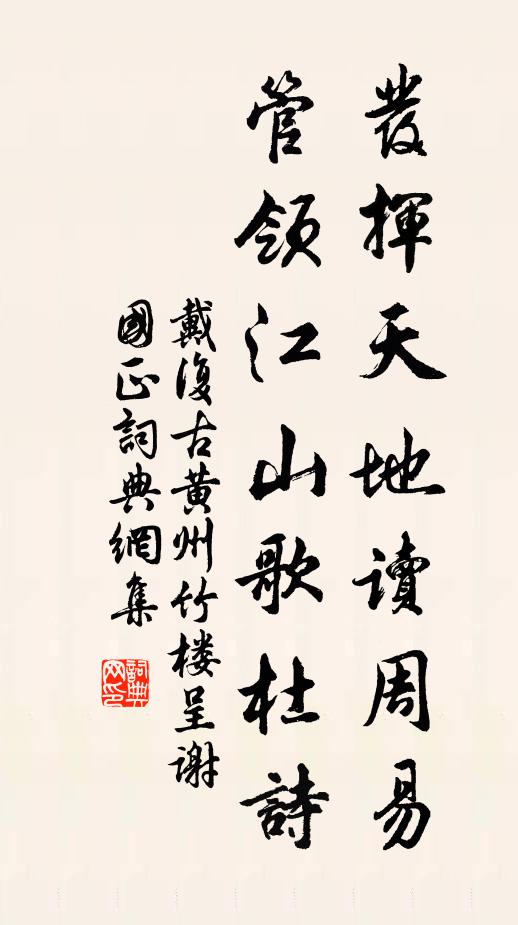 發揮天地讀周易
管領江山歌杜詩
戴復古黃州竹楼呈謝
國正詞典網集
詞典网印